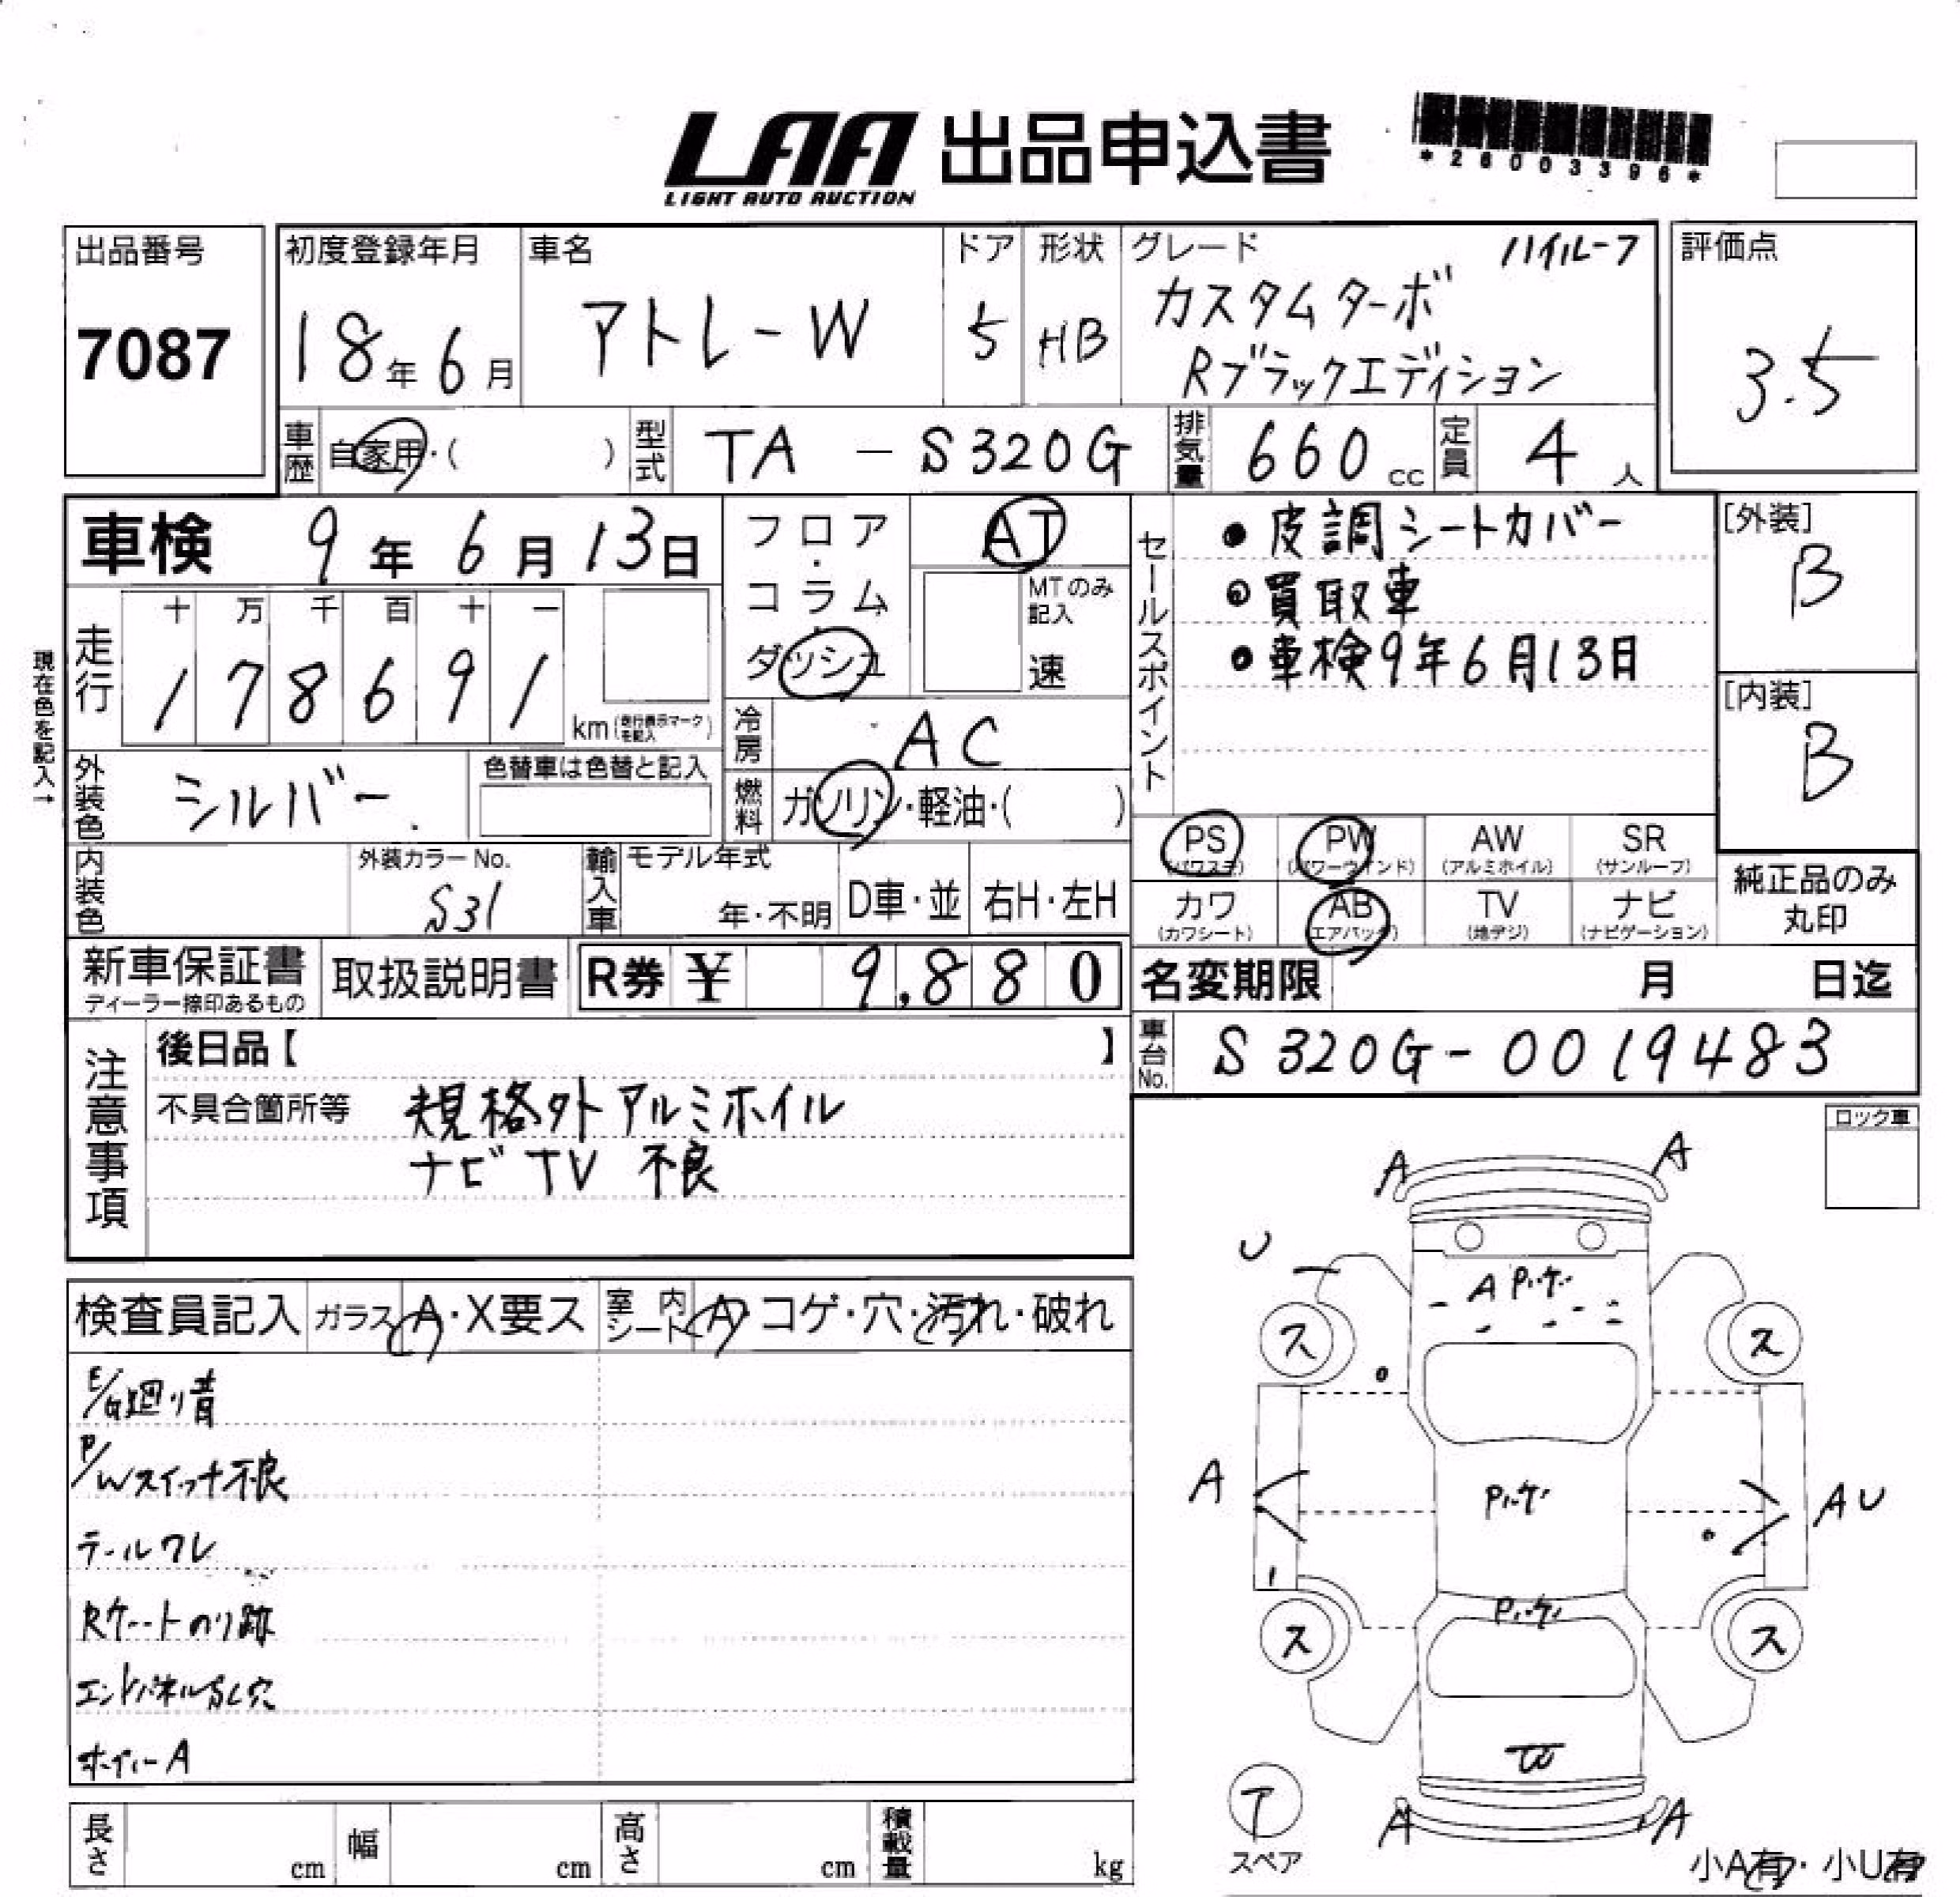 LAA 出品申込書
LIGHT AUTO AUCTION
*26003396*
出品番号
7087
初度登録年月
18年6月
車名
アトレーW
ドア
5
形状
HB
グレード
ハイルーフ
カスタムターボ
Rブラックエディション
評価点
3.5
車歴
自家用・( )
型式
TA - S320G
排気量
660cc
定員
4人
車検 9年6月13日
フロア・
コラム・
ダッシュ
AT
MTのみ
記入
速
セールスポイント
●皮調シートカバー
●買取車
●車検9年6月13日
[外装]
B
[内装]
B
現在色を記入→
走行
十万千百十一
178691
km(走行表示マークを記入)
冷房
AC
外装色
シルバー
色替車は色替と記入
燃料
ガソリン・軽油・( )
PS
(パワステ)
PW
(パワーウインド)
AW
(アルミホイル)
SR
(サンルーフ)
カワ
(カワシート)
AB
(エアバック)
TV
(地デジ)
ナビ
(ナビゲーション)
純正品のみ
丸印
内装色
外装カラーNo.
S31
輸入車
モデル年式
年・不明
D車・並
右H・左H
新車保証書
ディーラー捺印あるもの
取扱説明書
R券 ¥ 9,880
名変期限 月 日迄
車台No.
S320G-0019483
注意事項
後日品【 】
不具合箇所等
規格外アルミホイル
ナビTV 不良
ロック車
検査員記入
ガラス A・X要ス
室内シート A・コゲ・穴・汚れ・破れ
E/G廻り青
P/Wスイッチ不良
テールワレ
Rゲートのり跡
エンドパネル
穴
ボディーA
A
A
U
A
ス
ス
A
AU
ス
ス
W
ア
スペア
A
A
小A有・小U有
長さ
cm
幅
cm
高さ
cm
積載量
kg